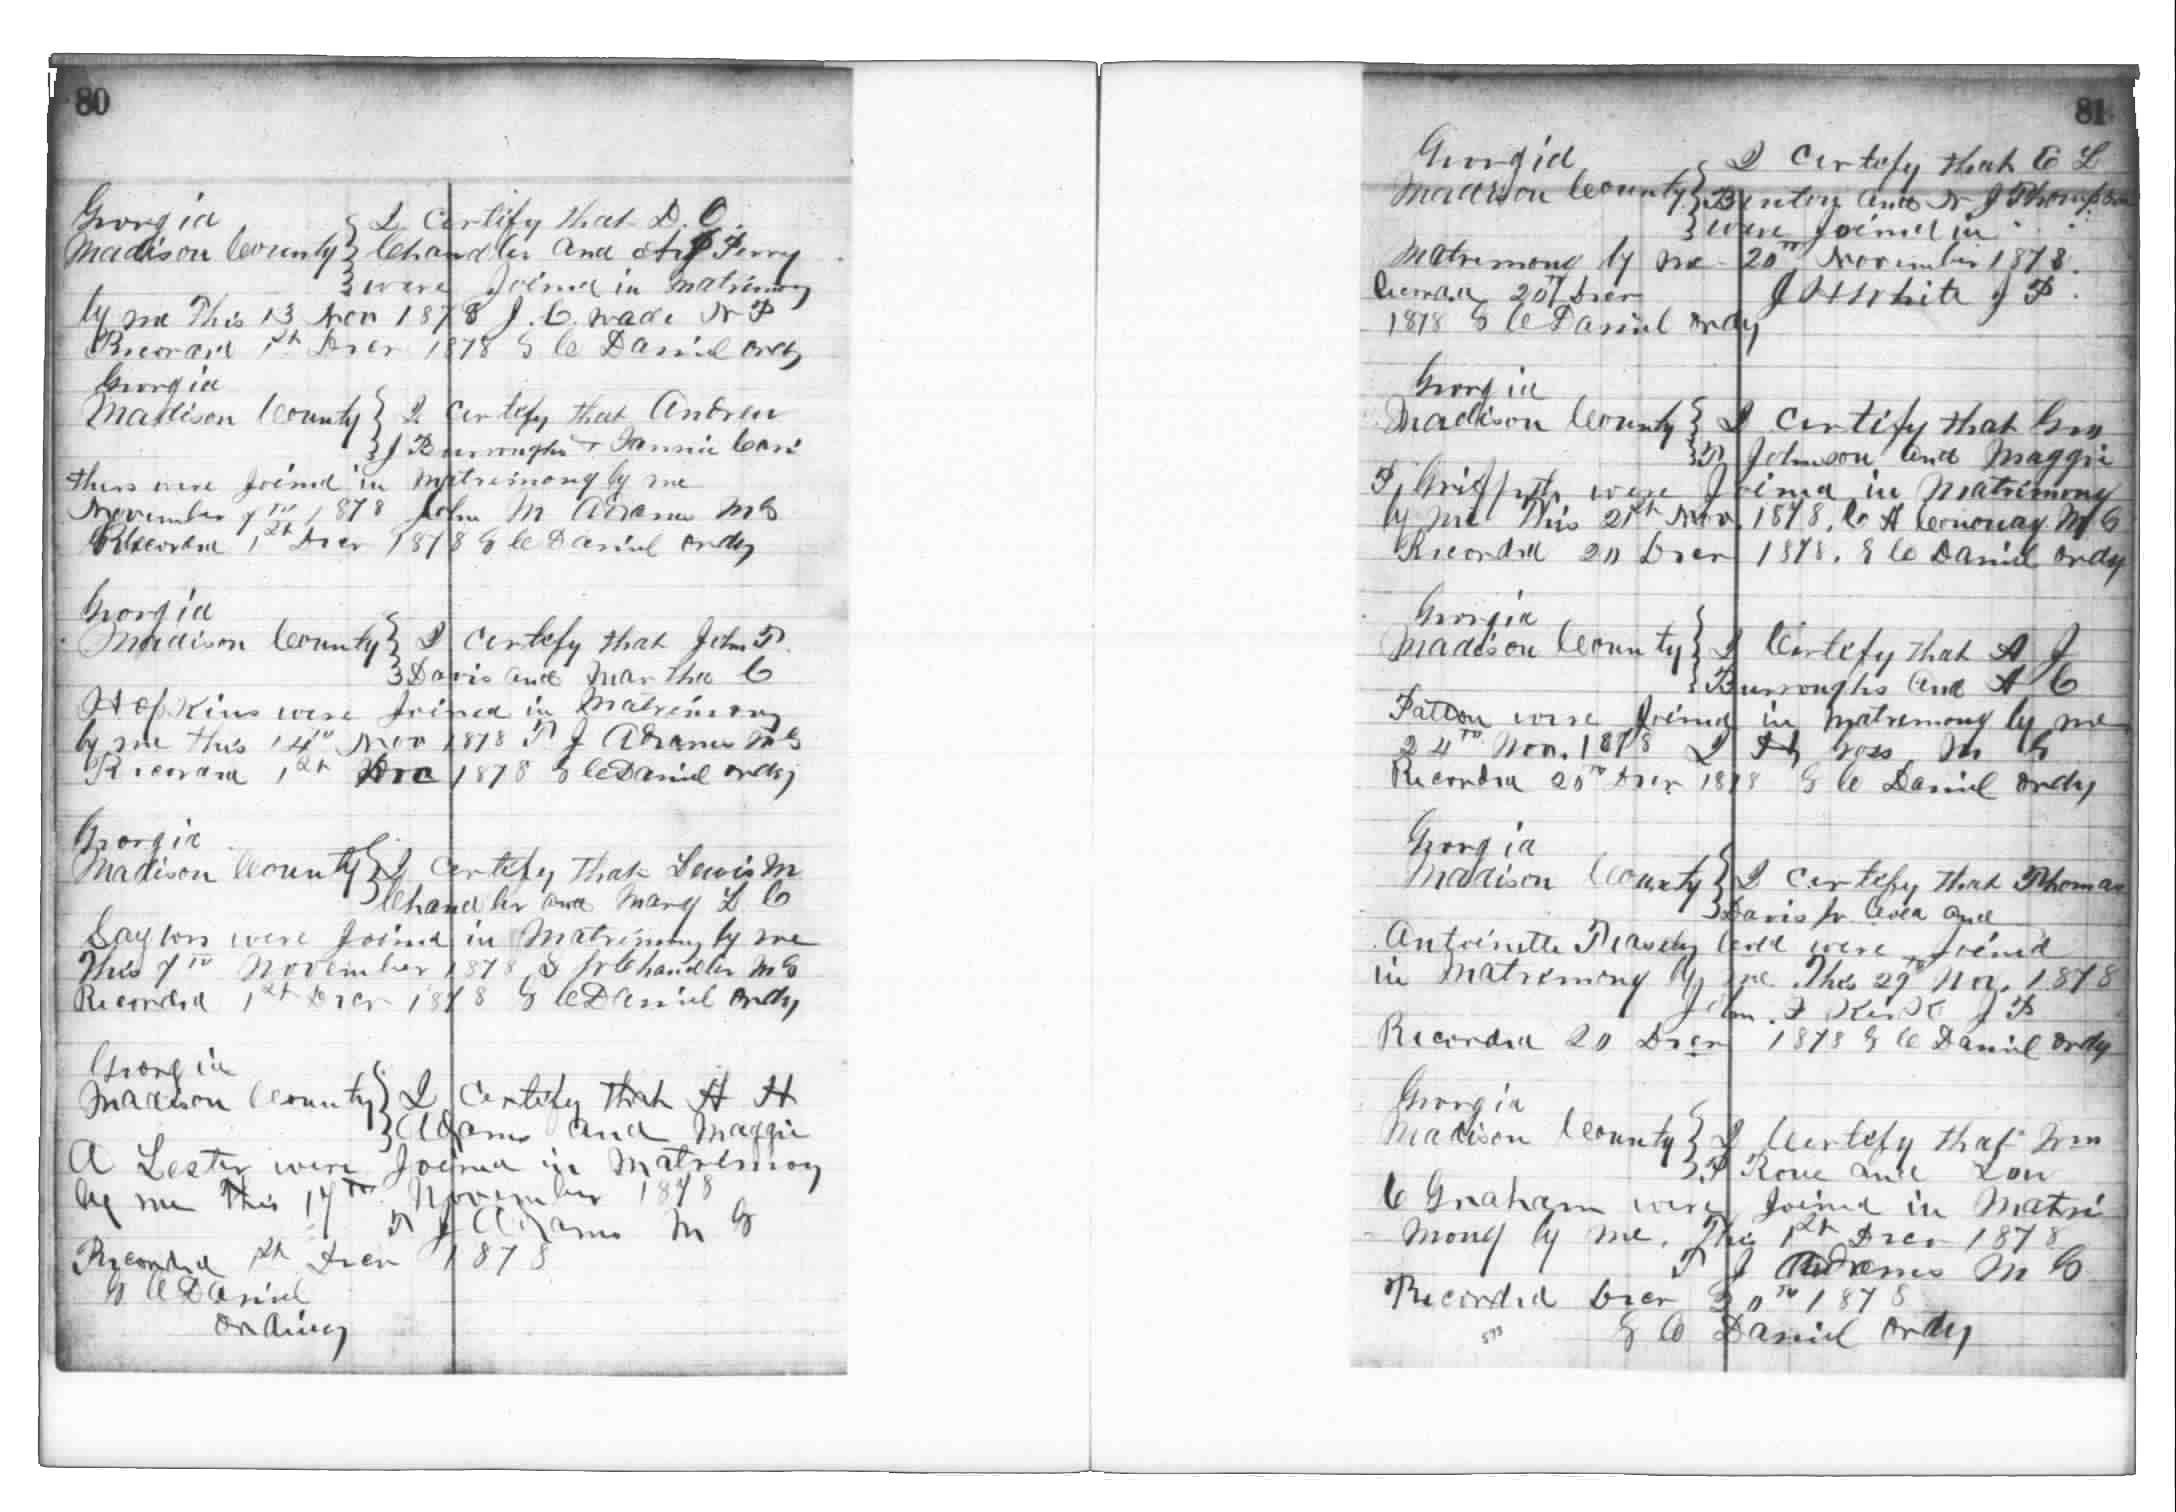 80
Georgia
Madison County } I Certify that D. O.
Chandler and P Perry
were Joined in matrimony
by me This 13 Nov 1878 J. C. Wade N P
Recorded 1st Decr 1878 G C Daniel Ordy
Georgia
Madison County } I Certify that Andrew
J Burroughs + Fannie Cari
thers were Joined in Matrimony by me
November 7th 1878 John M Adams M G
Recorded 1st Decr 1878 G C Daniel Ordy
Georgia
Madison County } I Certify that John T.
Davis and Martha C
Hopkins were Joined in Matrimony
by me this 14th Nov 1878 T J Adams M G
Recorded 1st Dec 1878 G C Daniel Ordy
Georgia
Madison County } I Certify that Lewis M
Chandler and Mary L C
Saylors were Joined in Matrimony by me
This 7th November 1878 Chandler M G
Recorded 1st Decr 1878 G C Daniel Ordy
Georgia
Madison County } I Certify that H H
Adams and Maggie
A Lester were Joined in Matrimony
by me this 17th November 1878
T J Adams M G
Recorded 1st Decr 1878
G C Daniel
Ordinary
81
Georgia
Madison County } I Certify that E L
Benton and N J Thompson
were Joined in
Matrimony by me 20th November 1878.
Record 20th Decr J H White J P.
1878 G C Daniel Ordy
Georgia
Madison County } I Certify that Geo
T Johnson and Maggie
P, Griffeth were Joined in Matrimony
by me This 21st Nov. 1878, C A Conoway M G
Recorded 20 Decr 1878. G C Daniel Ordy
Georgia
Madison County } I Certify that A J
Burroughs and A C
Patton were Joined in matrimony by me
24th Nov. 1878 Goss M G
Recorded 20th Decr 1878 G C Daniel Ordy
Georgia
Madison County } I Certify that Thomas
Davis Jr Cold and
Antoinette Teasley Cold were Joined
in Matrimony by me This 29th Nov. 1878
John. F Kirk J P
Recorded 20 Decr 1878 G C Daniel Ordy
Georgia
Madison County } I Certify that Wm
P Rowe and Lou
C Graham were Joined in Matri
mony by me. This 1st Decr 1878
T J Adams M G
Recorded Decr 20th 1878
G C Daniel Ordy